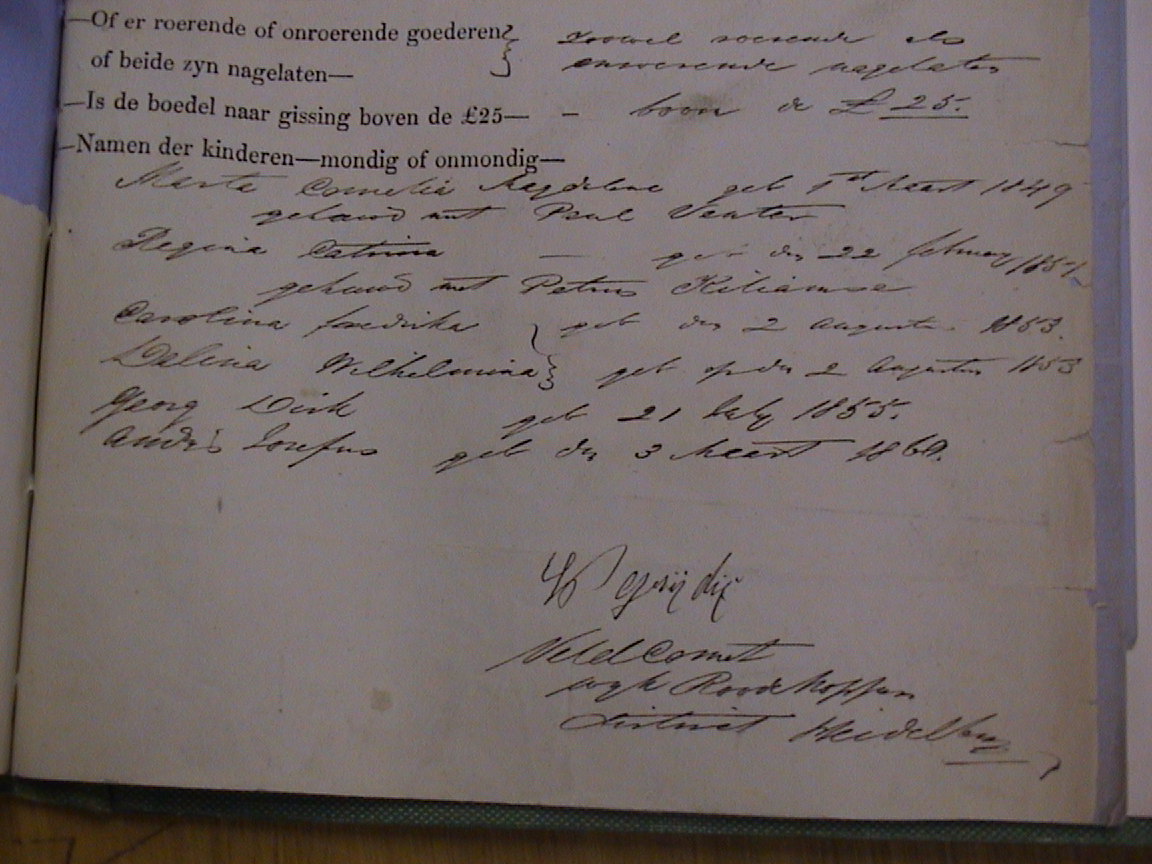 —Of er roerende of onroerende goederen} Zoowel roerende als
of beide zyn nagelaten— onroerende nagelaten
—Is de boedel naar gissing boven de £25— - boven de £25.
—Namen der kinderen—mondig of onmondig—
Marta Cornelia Magdelena geb 1st Maart 1849
gehuwd met Paul Venter
Regina Catrina — geb den 22 february 1851
gehuwd met Petrus
Carolina fredrika } geb den 2 Augustus 1853.
Dalina Wilhelmina } geb op den 2 Augustus 1853
Georg Dirk geb 21 July 1855.
Josefus geb den 3 Maart 1860.
Veld Cornet
wyk Roodekoppen
District Heidelberg